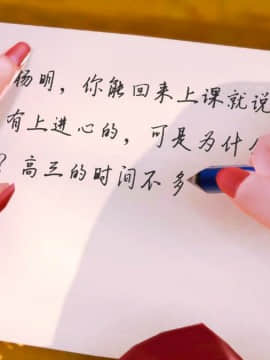 杨明，你能回来上课就说
有上进心的，可是为什
？高三的时间不多